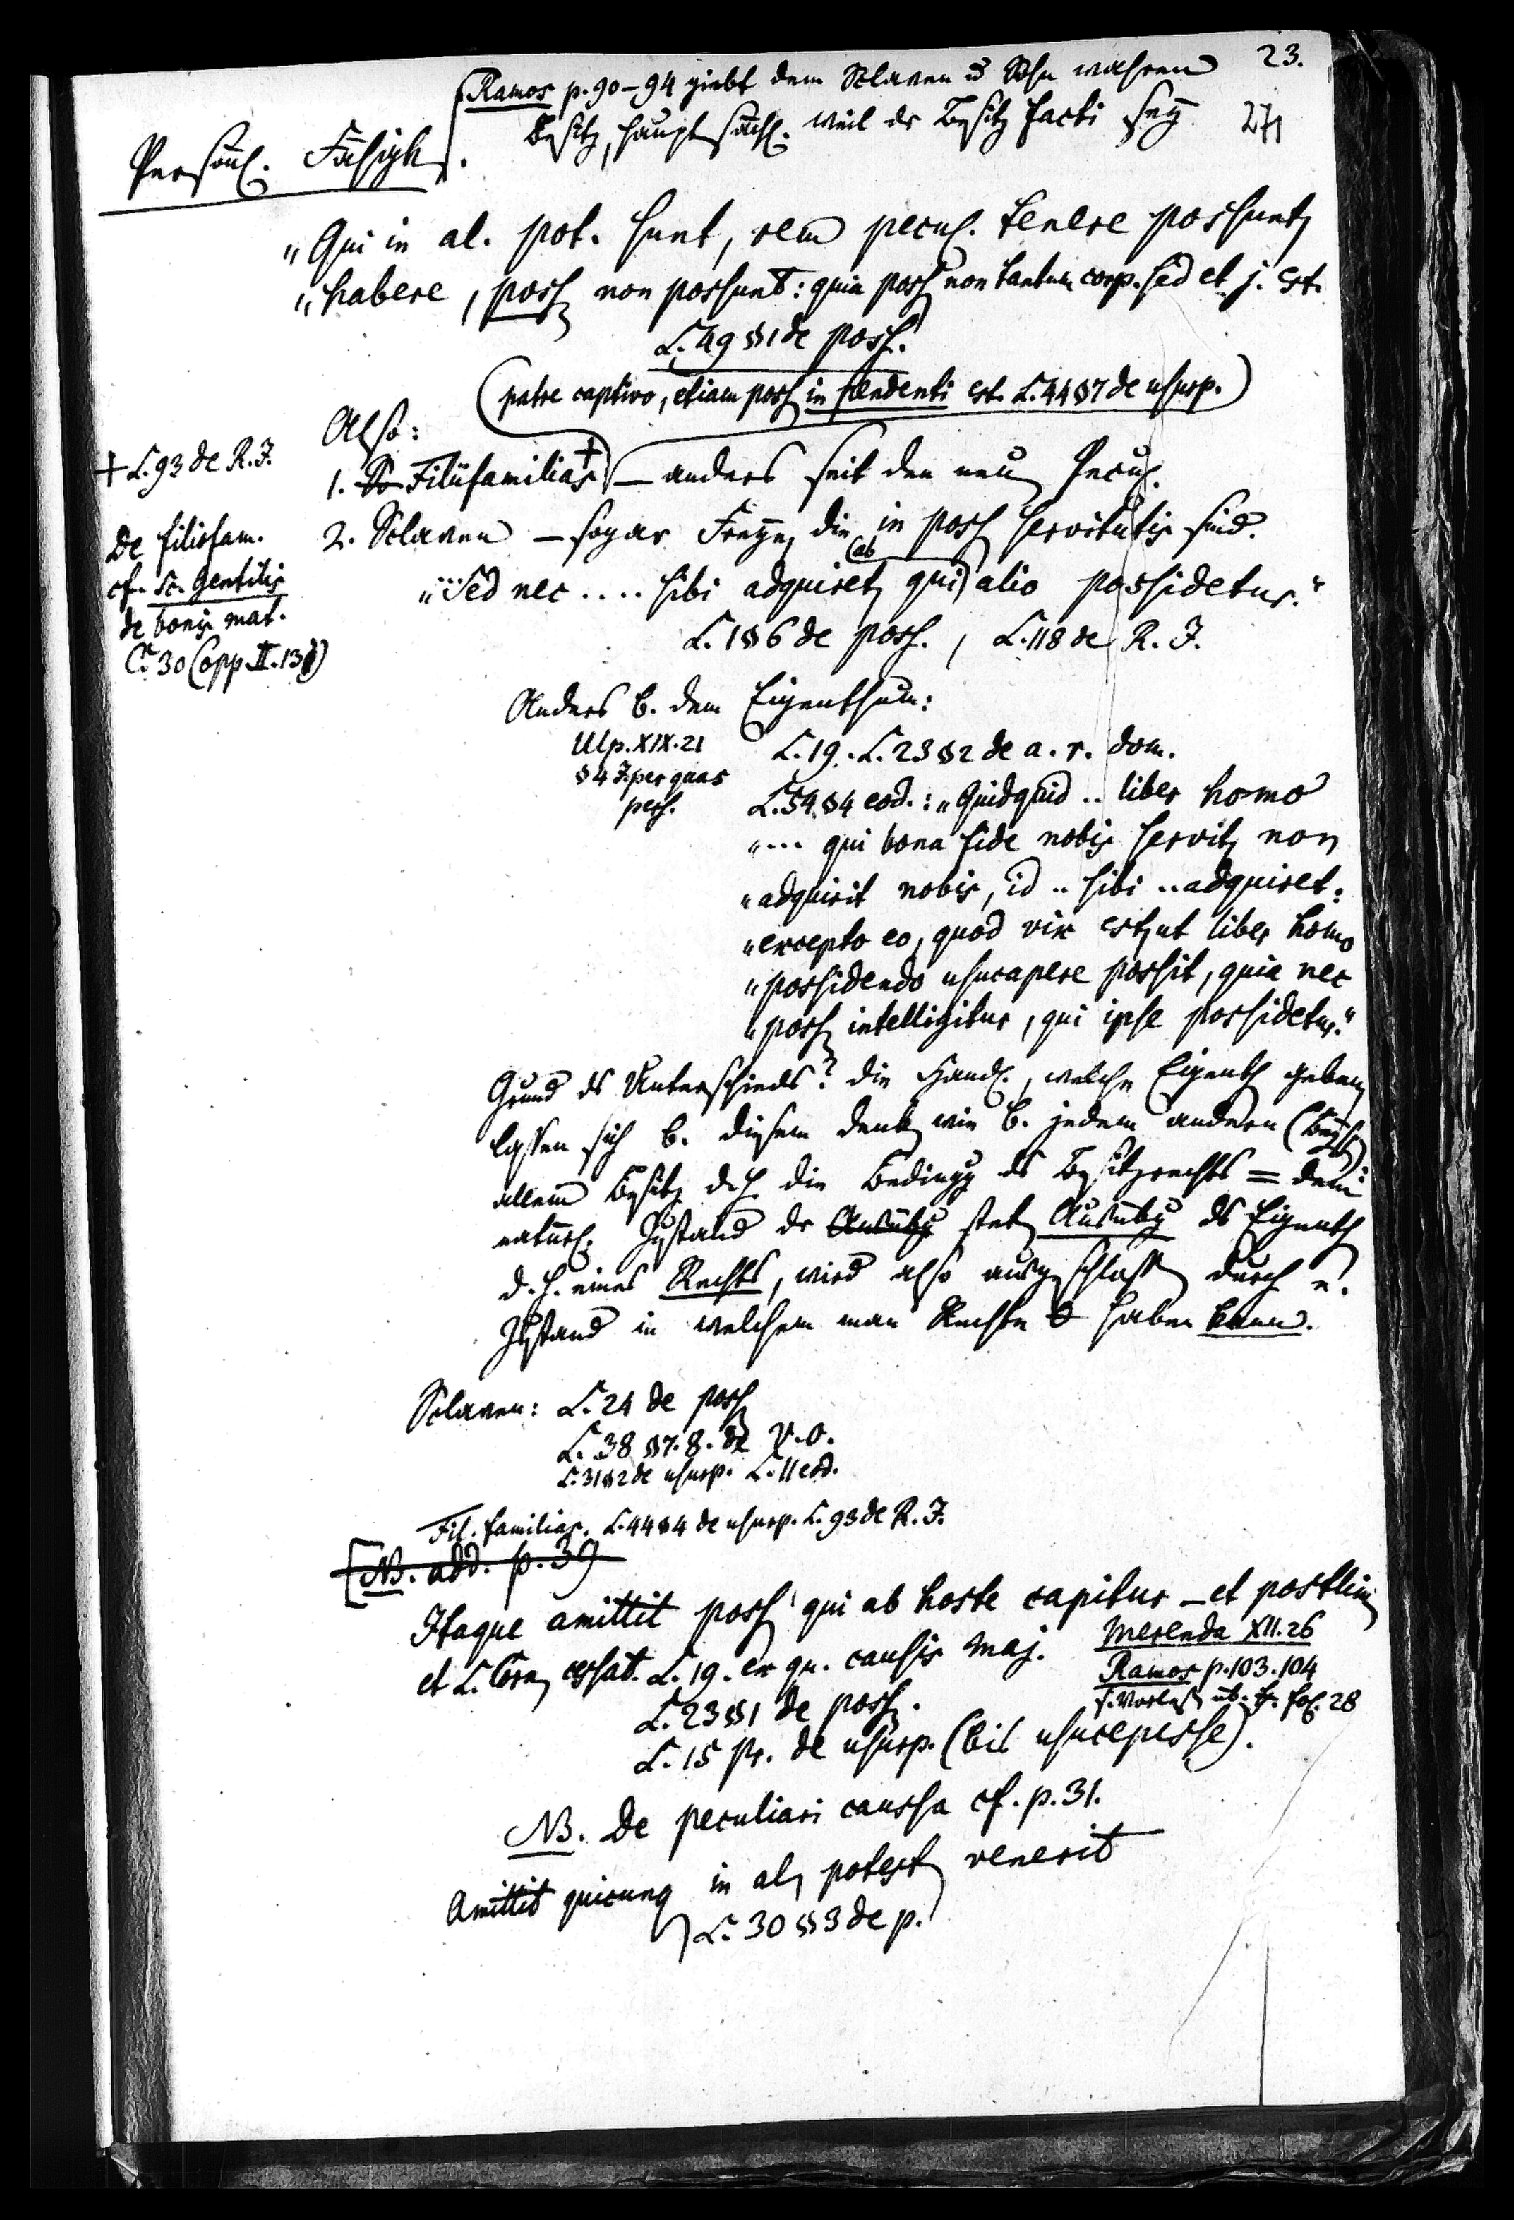 23.
Ramos p. 90–94 giebt dem Sclaven u Sohn wahren
Besitz, hauptsächl. weil der Besitz facti sey
271
Persönl. Fähigk.
„Qui in al. pot. sunt, rem pecul. tenere possunt,
„habere, poss. non possunt: quia poss. non tantum corp. sed et j. est.
L. 49 § 1 de poss.
(patre captivo, etiam poss. in pendenti est. L. 44 § 7 de usurp.)
Also:
† L. 93 de R. J.
1. Filiifamilias † – anders seit den neuen Pecul.
2. Sclaven – sogar Freye, die in poss. servitutis sind.
De filiisfam.
cf. Sc. Gentilis
de bonis mat.
C. 30 (opp. II. 13)
„Sed nec .... sibi adquiret, qui ab alio possidetur."
L. 1 § 6 de poss., L. 118 de R. J.
Anders b. dem Eigenthum:
Ulp. XIX. 21
§ 4 J. per quas
pers.
L. 19. L. 23 § 2 de a. r. dom.
L. 54 § 4 eod.: „Quidquid .. liber homo
„... qui bona fide nobis servit, non
„adquirit nobis, id .. sibi .. adquiret:
„excepto eo, quod vix est, ut liber homo
„possidendo usucapere possit, quia nec
„poss. intelligitur, qui ipse possidetur."
Grund des Unterschieds? die Handl., welche Eigenth. geben
lassen sich b. diesem denken wie b. jedem andern
allein Besitz d. h. die Bedingg des Besitzrechts = dem
natürl. Zustand der Ausübg stets Ausübg des Eigenth.
d. h. eines Rechts, wird also ausgeschlossen durch e.
Zustand in welchem man Rechte haben kann.
Sclaven: L. 24 de poss.
L. 38 § 7. 8. de V. O.
L. 31 § 2 de usurp. L. 11 eod.
Fil. familias. L. 44 § 4 de usurp. L. 93 de R. J.
[NB. add. p. 39
Itaque amittit poss. qui ab hoste capitur – et postlim.
et L. Corn. cessat. L. 19. ex qu. causis maj.
Merenda XII. 26
Ramos p. 103. 104
fol. 28
L. 23 § 1 de poss.
L. 15 pr. de usurp. (bis usucepisse).
NB. De peculiari caussa cf. p. 31.
Amittit quicunq in al. potest. venerit
L. 30 § 3 de p.